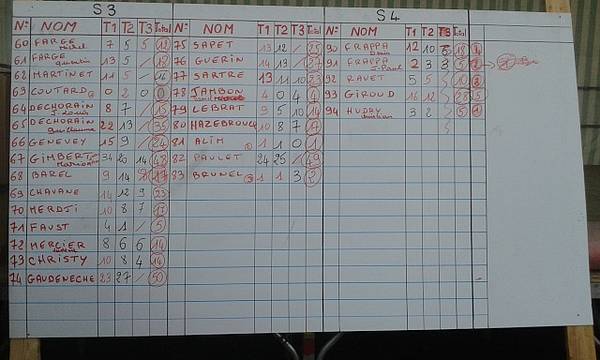 S3 S4
N° NOM T1 T2 T3 Total N° NOM T1 T2 T3 Total N° NOM T1 T2 T3 Total
60 FARGE Michel 7 5 5 12 75 SAPET 13 12 / 25 90 FRAPPA 12 10 18
61 FARGE Quentin 13 5 / 18 76 GUERIN 14 13 / 27 91 FRAPPA J-Paul 2 3 3 5
62 MARTINET 11 5 / 16 77 SARTRE 13 11 10 23 92 RAVET 5 5 / 10
63 COUTARD 0 2 0 0 78 JAMBON 4 0 4 4 93 GIROUD 16 12 / 28
64 DECHORAIN J-Louis 8 7 / 15 79 LEBRAT 9 5 10 14 94 HUDRY 3 2 / 5
65 DECHORAIN Guillaume 22 13 / 35 80 HAZEBROUCQ 10 8 7
66 GENEVEY 15 9 / 24 81 ALIM 1 1 0 1
67 GIMBERT 34 20 14 82 PAULET 24 25 / 49
68 BAREL 9 14 8 17 83 BRUNEL 1 1 3 2
69 CHAVANE 14 12 9
70 MERDJI 10 8 7
71 FAUST 4 1 / 5
72 MERCIER 8 6 6 14
73 CHRISTY 10 8 4
74 GAUDENECHE 23 27 / 50